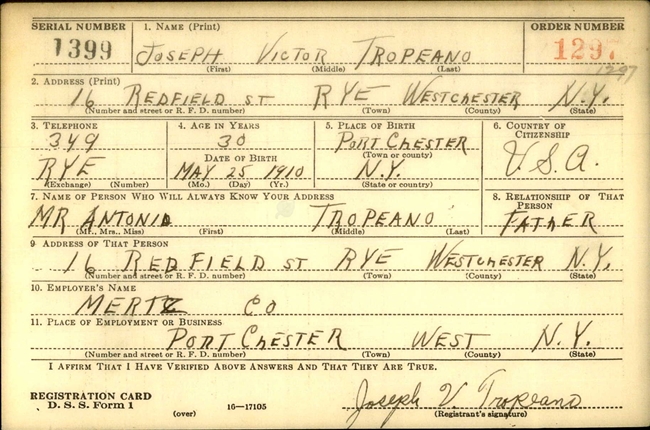 SERIAL NUMBER 1. NAME (Print) ORDER NUMBER
1399 JOSEPH VICTOR TROPEANO 1297
(First) (Middle) (Last)
1297
2. ADDRESS (Print)
16 REDFIELD ST RYE WESTCHESTER N.Y.
(Number and street or R. F. D. number) (Town) (County) (State)
3. TELEPHONE 4. AGE IN YEARS 5. PLACE OF BIRTH 6. COUNTRY OF CITIZENSHIP
349 30 PORT CHESTER U.S.A.
(Town or county)
RYE DATE OF BIRTH N.Y.
MAY 25 1910
(Exchange) (Number) (Mo.) (Day) (Yr.) (State or country)
7. NAME OF PERSON WHO WILL ALWAYS KNOW YOUR ADDRESS 8. RELATIONSHIP OF THAT PERSON
MR ANTONIO TROPEANO FATHER
(Mr., Mrs., Miss) (First) (Middle) (Last)
9. ADDRESS OF THAT PERSON
16 REDFIELD ST RYE WESTCHESTER N.Y.
(Number and street or R. F. D. number) (Town) (County) (State)
10. EMPLOYER'S NAME
MERTZ CO
11. PLACE OF EMPLOYMENT OR BUSINESS
PORT CHESTER WEST N.Y.
(Number and street or R. F. D. number) (Town) (County) (State)
I AFFIRM THAT I HAVE VERIFIED ABOVE ANSWERS AND THAT THEY ARE TRUE.
REGISTRATION CARD Joseph V. Tropeano
D. S. S. Form 1 (over) 16—17105 (Registrant's signature)